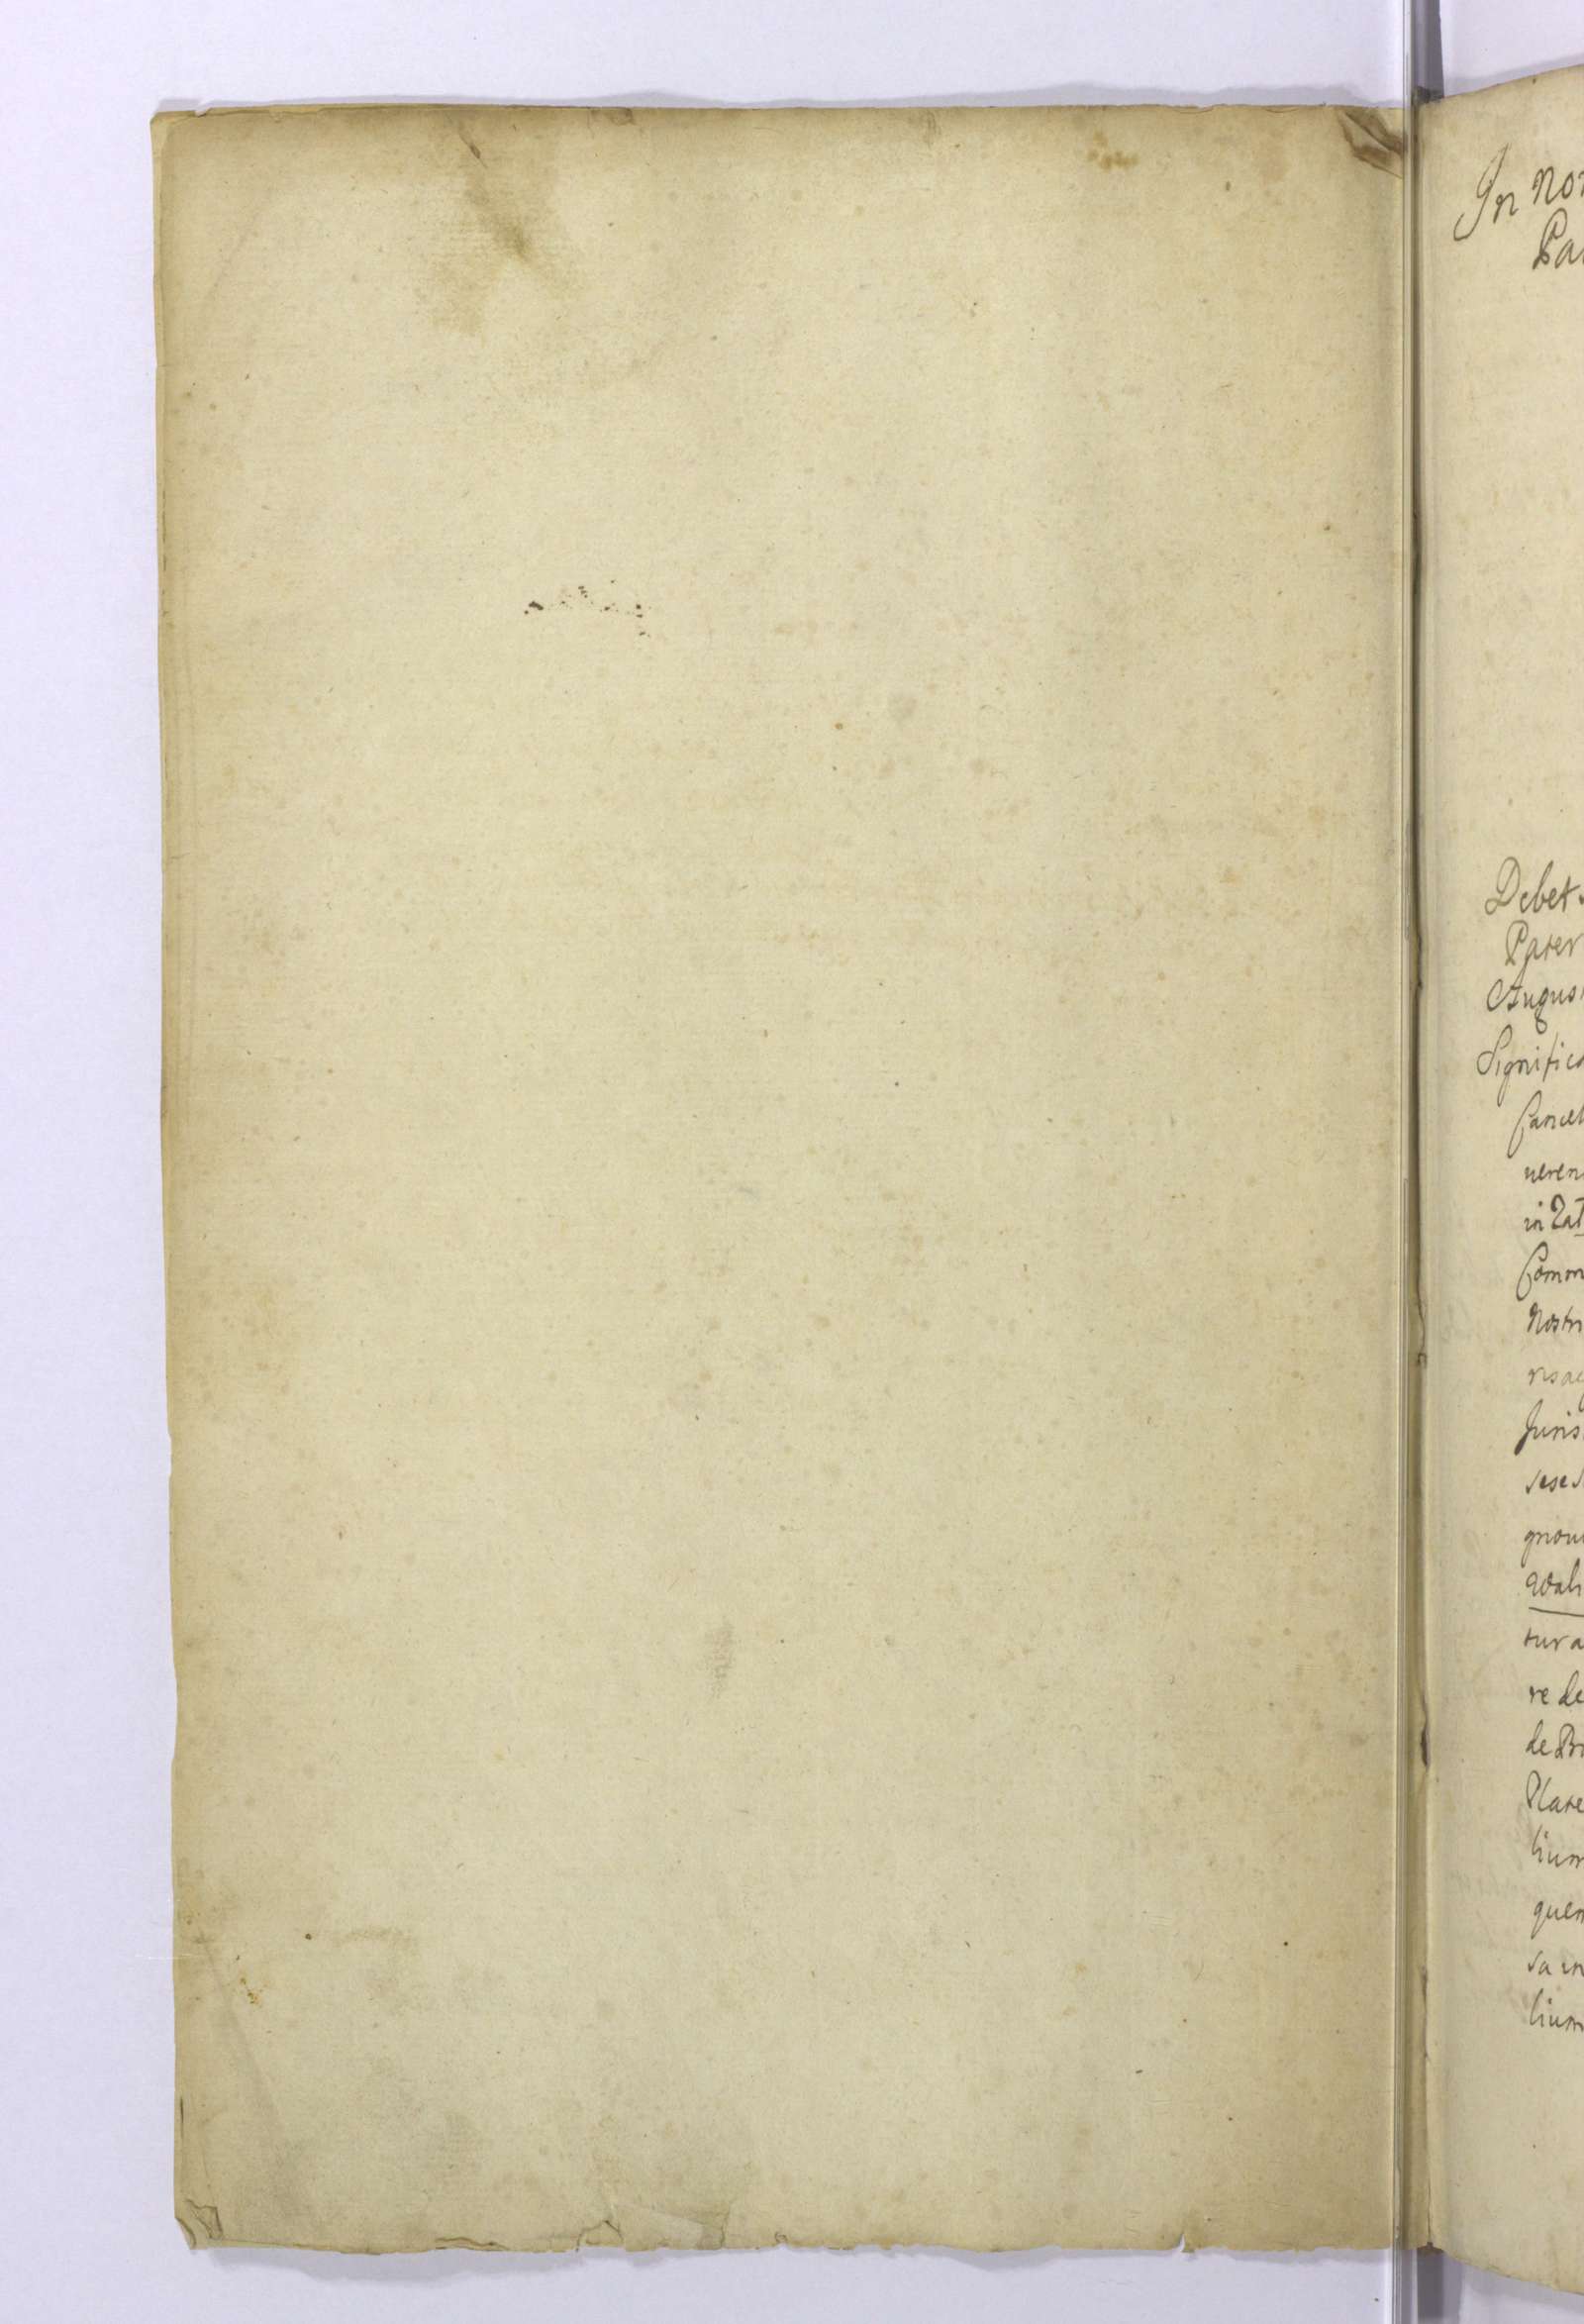 In no
Pa
Debet
Pater
Augus
Significa
Cancel
veren
in Lat
Comm
Nostri
ris ac
Juris
sese
gnou
Wali
tur a
re de
de Br
Plate
lium
quem
sa in
lium